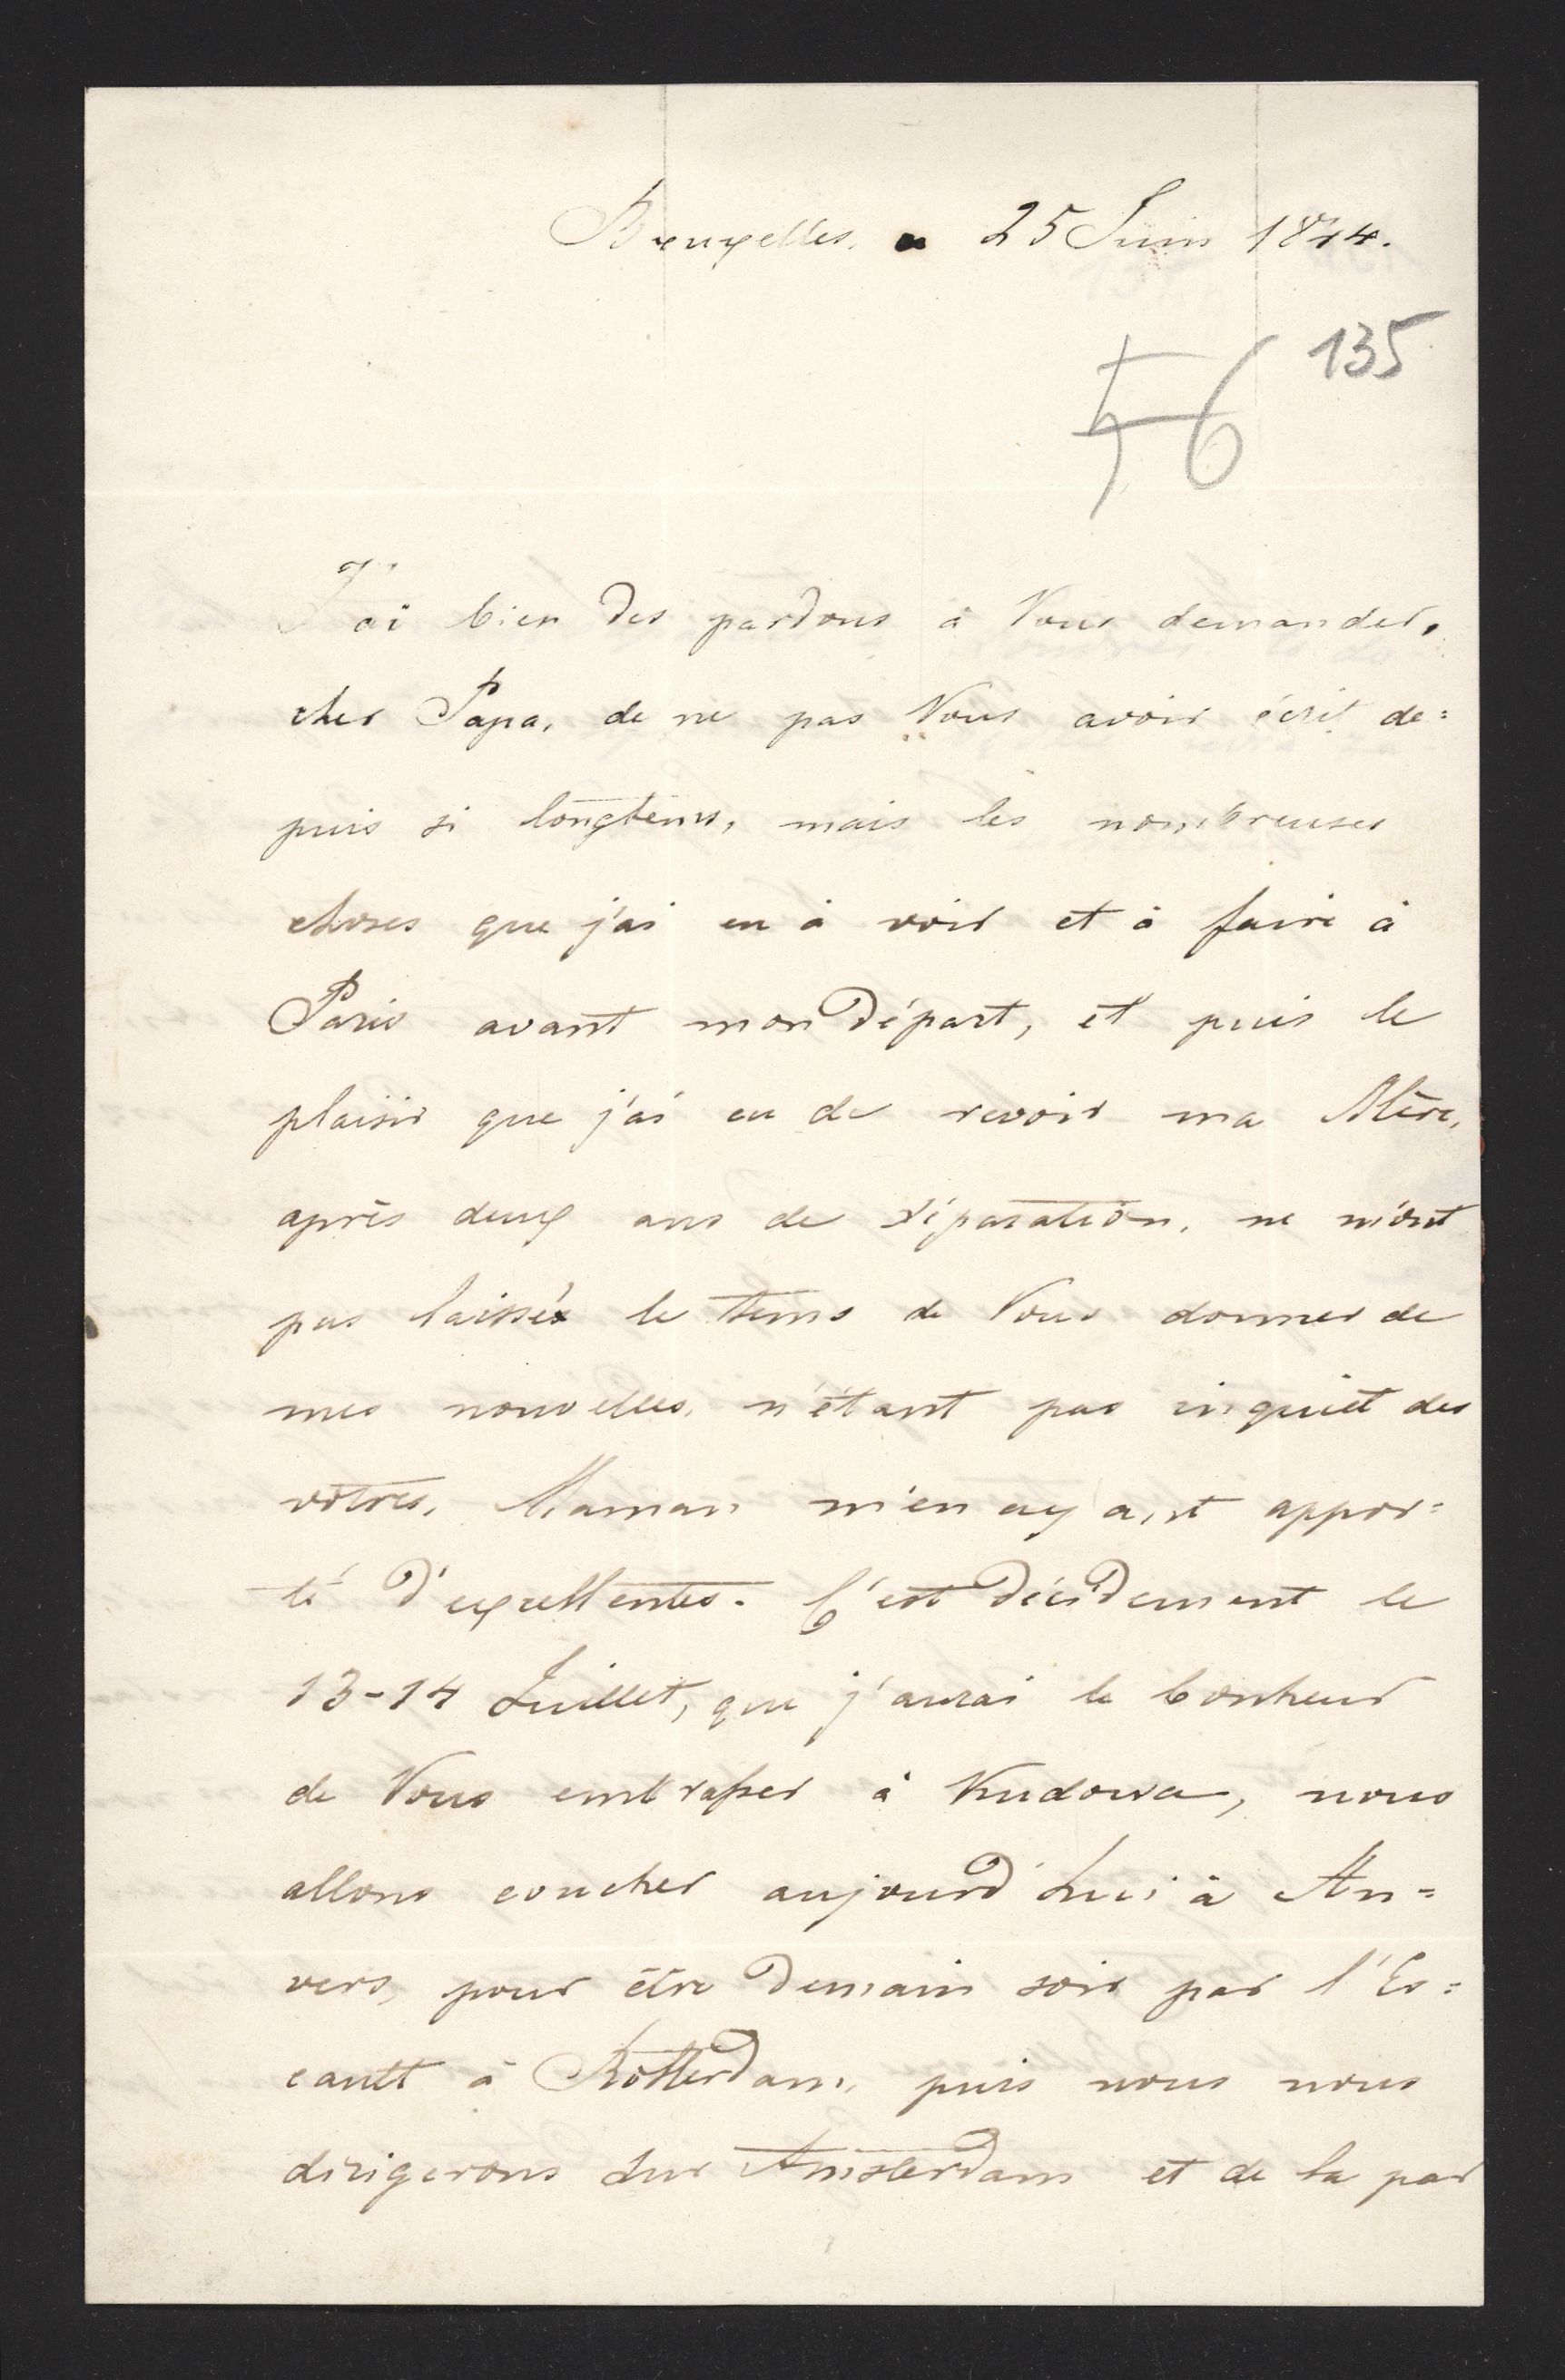 Bruxelles. 25 Juin 1844.
135
56
J'ai bien des pardons à Vous demander,
cher Papa, de ne pas Vous avoir écrit de=
puis si longtems, mais les nombreuses
choses que j'ai eu à voir et à faire à
Paris avant mon départ, et puis le
plaisir que j'ai eu de revoir ma Mère,
après deux ans de séparation, ne m'ont
pas laissés le tems de Vous donner de
mes nouvelles, n'étant pas inquiet des
vôtres, Maman m'en ayant appor=
té d'exellentes. C'est décidement le
13-14 Juillet, que j'aurai le bonheur
de Vous embrasser à Kudowa, nous
allons coucher aujourd'hui à An=
vers, pour être demain soir par l'Es=
cautt à Rotterdam, puis nous nous
dirigerons sur Amsterdam et de la par